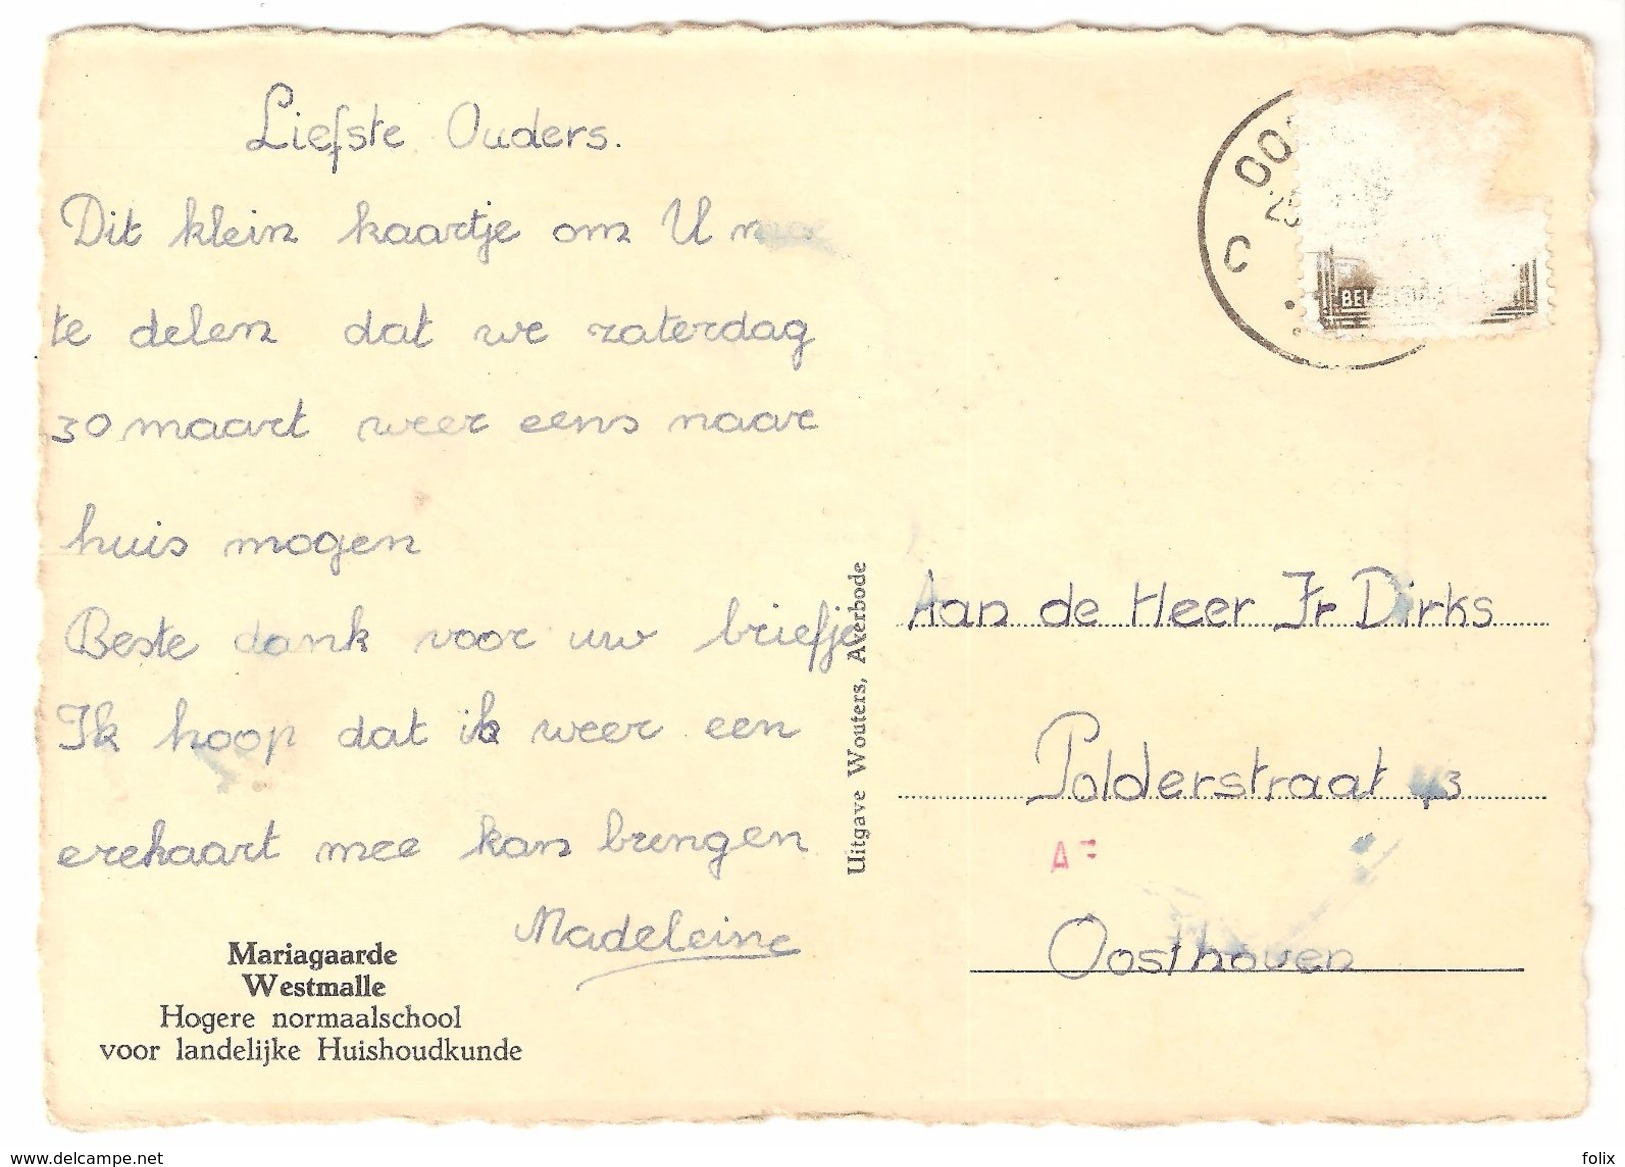 Liefste Ouders.
Dit klein kaartje om U
te delen dat we zaterdag
30 maart weer eens naar
huis mogen
Beste dank voor uw briefje
Ik hoop dat ik weer een
erekaart mee kan brengen
Madeleine
Mariagaarde
Westmalle
Hogere normaalschool
voor landelijke Huishoudkunde
Uitgave Wouters, Averbode
C
BEL
Aan de Heer Fr Dirks
Polderstraat
Oosthoven
www.delcampe.net
felix